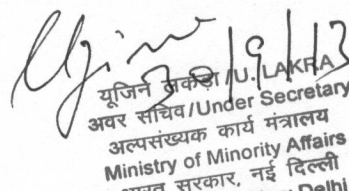 30/9/13
यूजिन लकड़ा/U. LAKRA
अवर सचिव/Under Secretary
अल्पसंख्यक कार्य मंत्रालय
Ministry of Minority Affairs
भारत सरकार, नई दिल्ली
Delhi